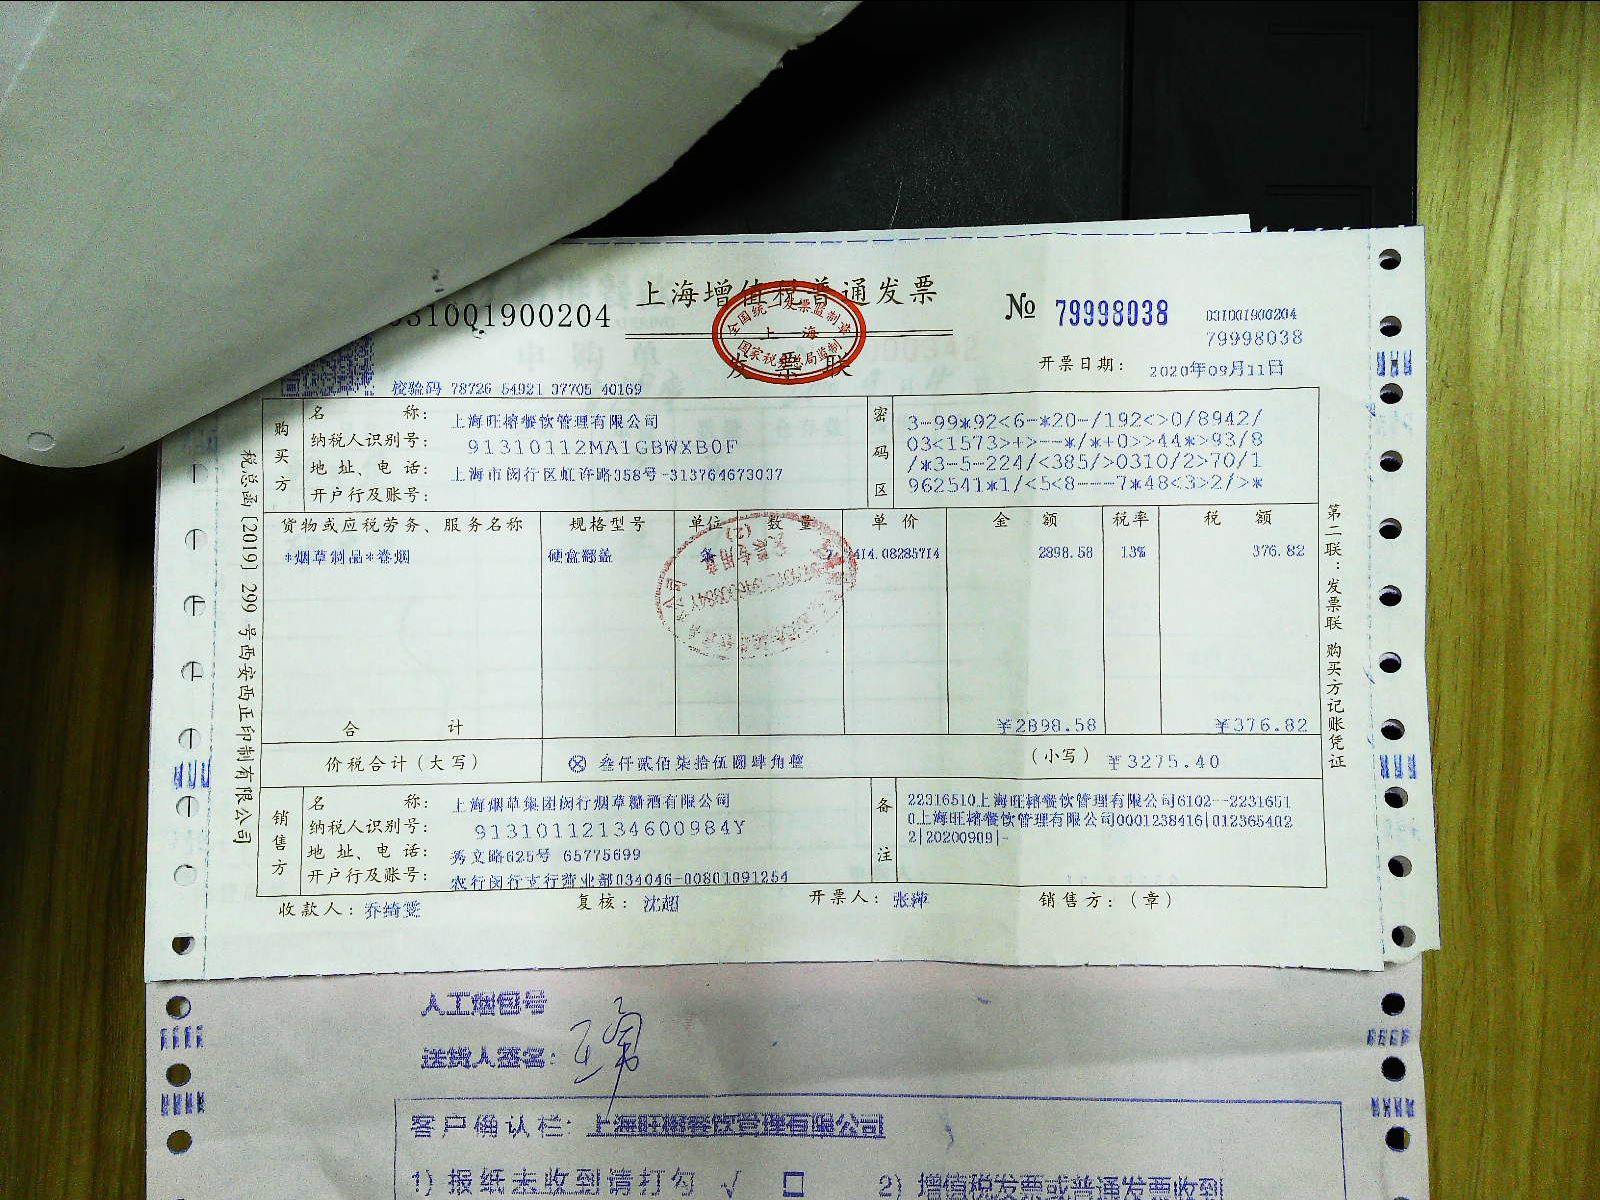 上海增值税普通发票
031001900204
全国统一发票监制章
上海
国家税务总局监制
发票联
№ 79998038
031001900204
79998038
开票日期： 2020年09月11日
校验码 78726 54921 37705 40169
购买方
名称： 上海旺榕餐饮管理有限公司
纳税人识别号： 91310112MA1GBWXB0F
地址、电话： 上海市闵行区虹许路358号-313764673037
开户行及账号：
密码区
3-99*92<6-*20-/192<>0/8942/
03<1573>+>--*/*+0>>44*>93/8
/*3-5-224/<385/>0310/2>70/1
962541*1/<5<8---7*48<3>2/>*
货物或应税劳务、服务名称 规格型号 单位 数量 单价 金额 税率 税额
*烟草制品*卷烟 硬盒翻盖 条 7 414.08285714 2898.58 13% 376.82
合计 ¥2898.58 ¥376.82
价税合计（大写） ⊗ 叁仟贰佰柒拾伍圆肆角整 （小写） ¥3275.40
销售方
名称： 上海烟草集团闵行烟草糖酒有限公司
纳税人识别号： 91310112134600984Y
地址、电话： 秀文路625号 65775699
开户行及账号： 农行闵行支行营业部034046-00801091254
备注
22316510上海旺榕餐饮管理有限公司6102--2231651
0上海旺榕餐饮管理有限公司0001238416|012365402
2|20200909|-
收款人：乔绮雯 复核：沈超 开票人：张萍 销售方：（章）
税总函〔2019〕299号西安西正印制有限公司
第二联：发票联 购买方记账凭证
人工烟包号
送货人签名：
客户确认栏：上海旺榕餐饮管理有限公司
1）报纸未收到请打勾 √ □ 2）增值税发票或普通发票收到